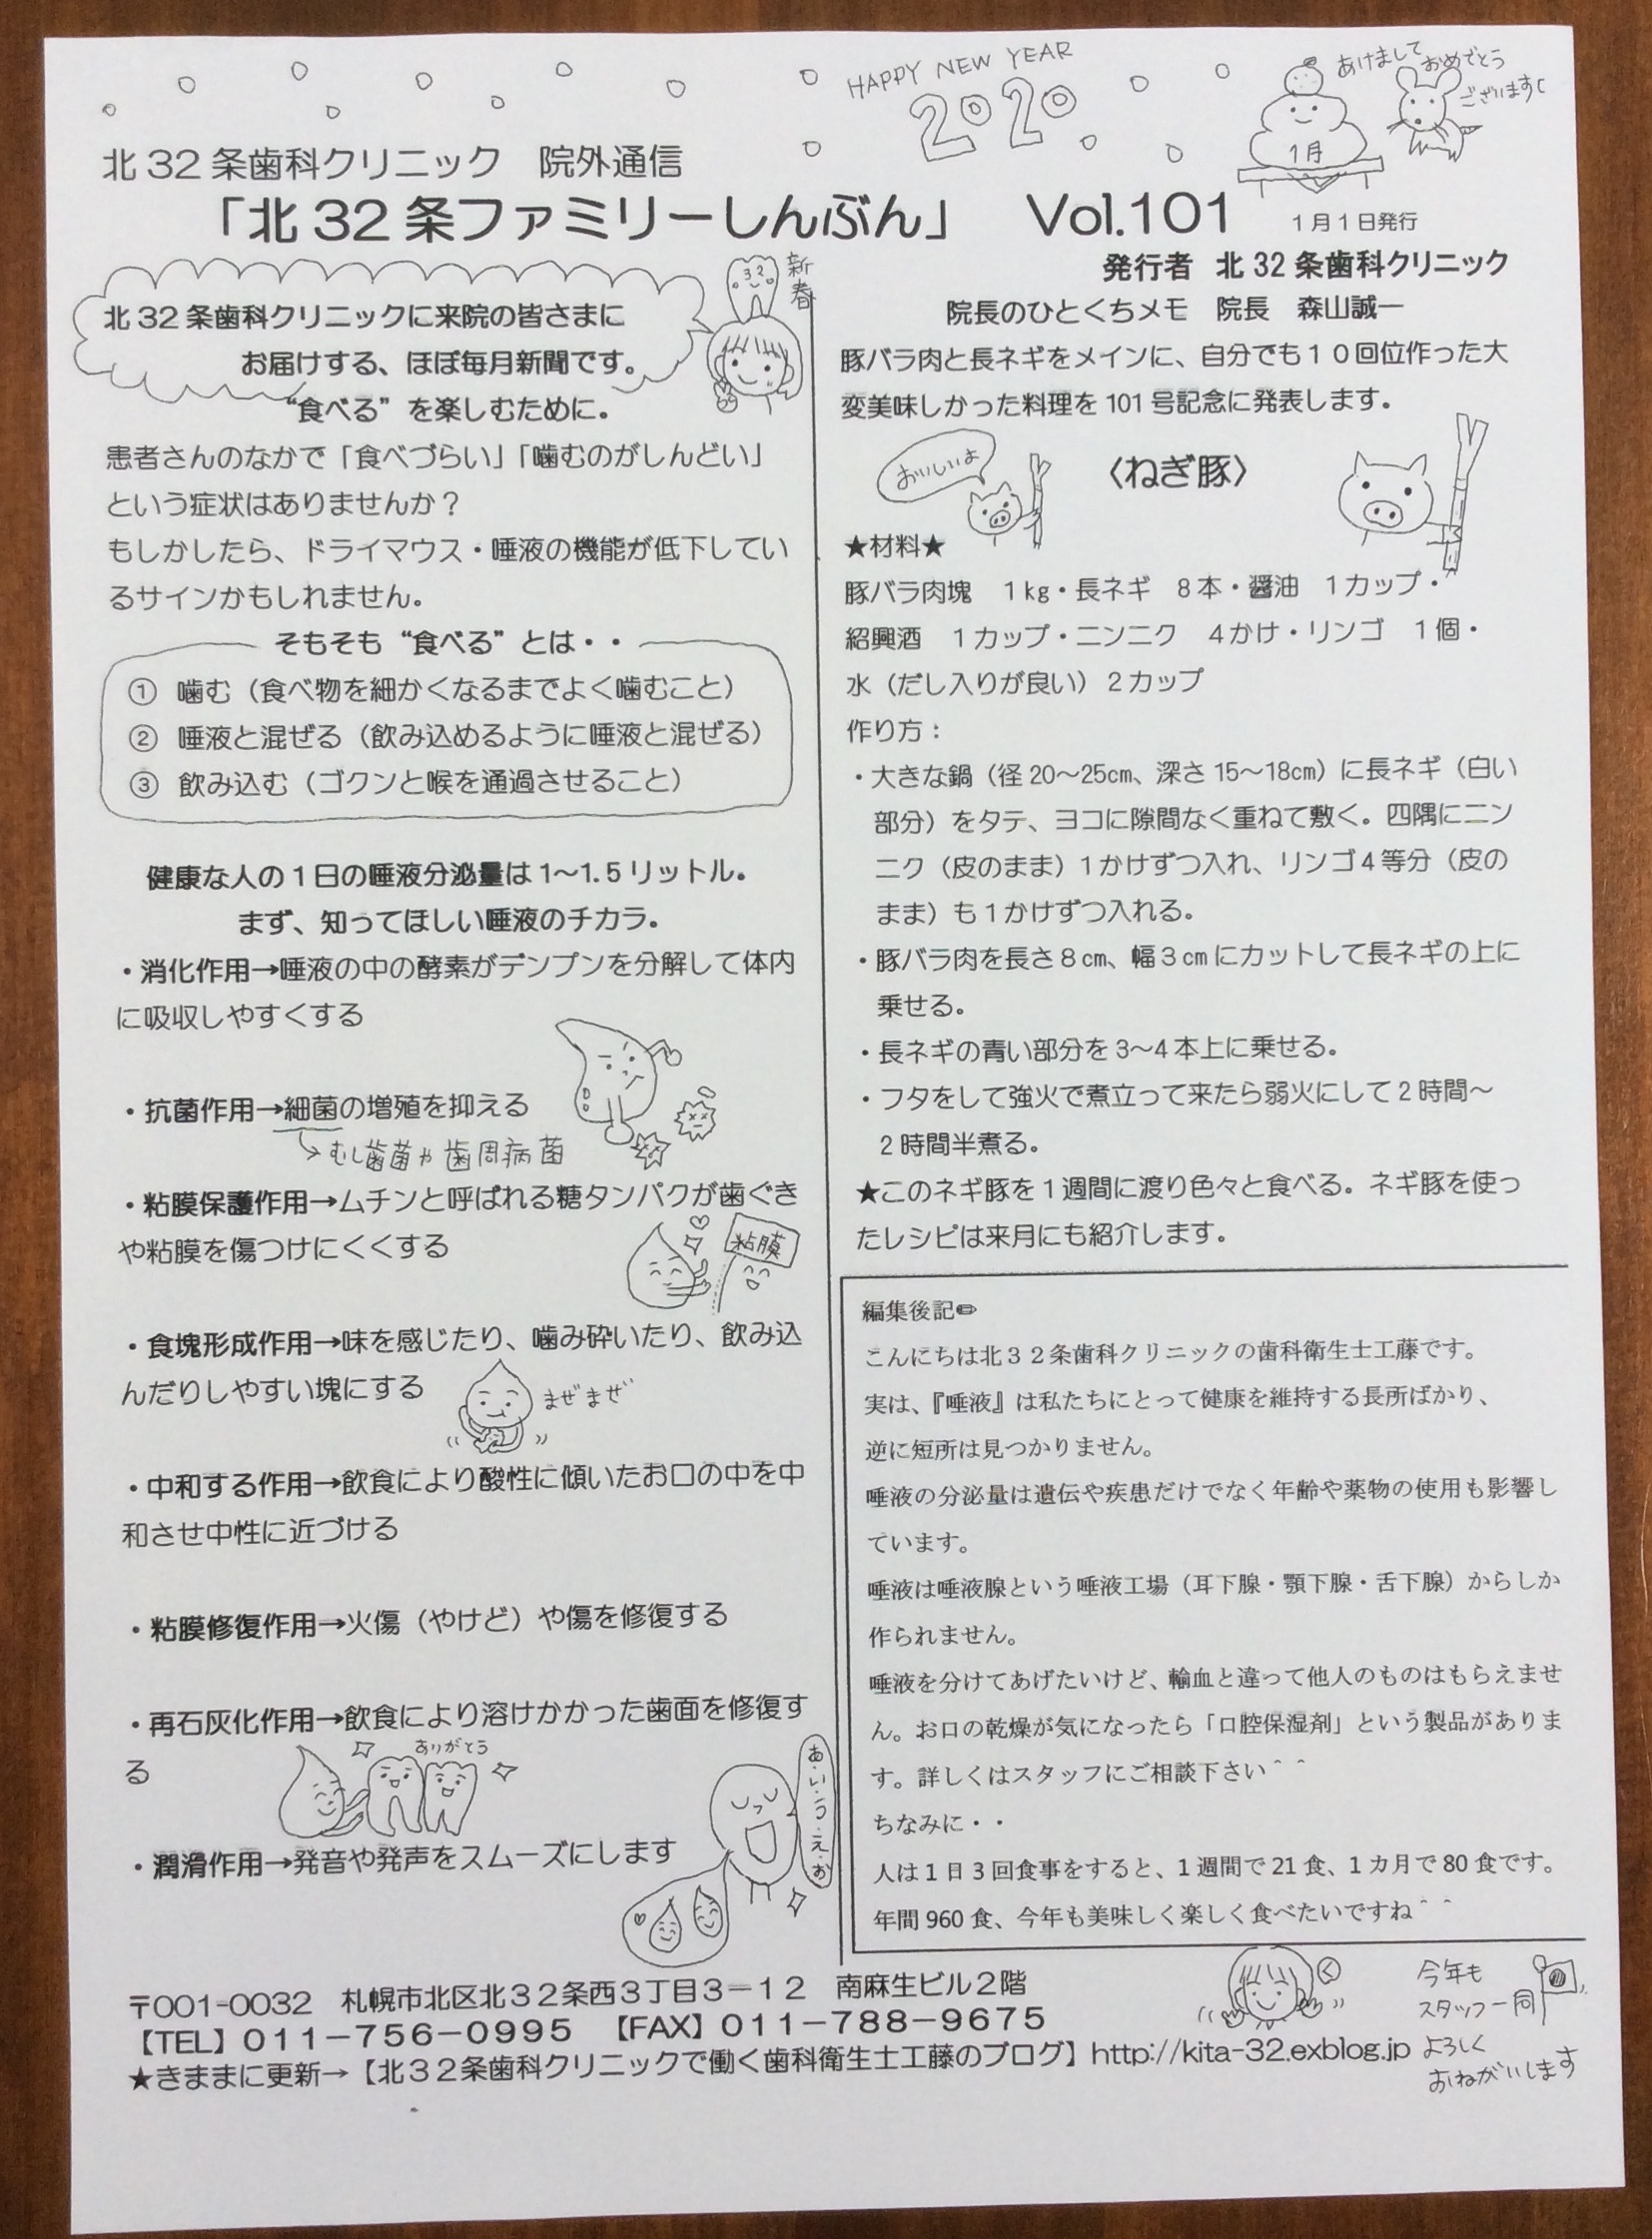 HAPPY NEW YEAR
2020
あけまして
おめでとう
ございます
1月
北32条歯科クリニック 院外通信
「北32条ファミリーしんぶん」 Vol.101 1月1日発行
32
新春
北32条歯科クリニックに来院の皆さまに
お届けする、ほぼ毎月新聞です。
“食べる”を楽しむために。
患者さんのなかで「食べづらい」「噛むのがしんどい」
という症状はありませんか？
もしかしたら、ドライマウス・唾液の機能が低下してい
るサインかもしれません。
そもそも“食べる”とは・・
① 噛む（食べ物を細かくなるまでよく噛むこと）
② 唾液と混ぜる（飲み込めるように唾液と混ぜる）
③ 飲み込む（ゴクンと喉を通過させること）
健康な人の1日の唾液分泌量は1～1.5リットル。
まず、知ってほしい唾液のチカラ。
・消化作用→唾液の中の酵素がデンプンを分解して体内
に吸収しやすくする
・抗菌作用→細菌の増殖を抑える
→むし歯菌や歯周病菌
・粘膜保護作用→ムチンと呼ばれる糖タンパクが歯ぐき
や粘膜を傷つけにくくする
粘膜
・食塊形成作用→味を感じたり、噛み砕いたり、飲み込
んだりしやすい塊にする
まぜまぜ
・中和する作用→飲食により酸性に傾いたお口の中を中
和させ中性に近づける
・粘膜修復作用→火傷（やけど）や傷を修復する
・再石灰化作用→飲食により溶けかかった歯面を修復す
る
ありがとう
あ・い・う・え・お
・潤滑作用→発音や発声をスムーズにします
発行者 北32条歯科クリニック
院長のひとくちメモ 院長 森山誠一
豚バラ肉と長ネギをメインに、自分でも10回位作った大
変美味しかった料理を101号記念に発表します。
おいしいよ
〈ねぎ豚〉
★材料★
豚バラ肉塊 1kg・長ネギ 8本・醤油 1カップ・
紹興酒 1カップ・ニンニク 4かけ・リンゴ 1個・
水（だし入りが良い）2カップ
作り方：
・大きな鍋（径20～25cm、深さ15～18cm）に長ネギ（白い
部分）をタテ、ヨコに隙間なく重ねて敷く。四隅にニン
ニク（皮のまま）1かけずつ入れ、リンゴ4等分（皮の
まま）も1かけずつ入れる。
・豚バラ肉を長さ8cm、幅3cmにカットして長ネギの上に
乗せる。
・長ネギの青い部分を3～4本上に乗せる。
・フタをして強火で煮立って来たら弱火にして2時間～
2時間半煮る。
★このネギ豚を1週間に渡り色々と食べる。ネギ豚を使っ
たレシピは来月にも紹介します。
編集後記✏
こんにちは北32条歯科クリニックの歯科衛生士工藤です。
実は、『唾液』は私たちにとって健康を維持する長所ばかり、
逆に短所は見つかりません。
唾液の分泌量は遺伝や疾患だけでなく年齢や薬物の使用も影響し
ています。
唾液は唾液腺という唾液工場（耳下腺・顎下腺・舌下腺）からしか
作られません。
唾液を分けてあげたいけど、輸血と違って他人のものはもらえませ
ん。お口の乾燥が気になったら「口腔保湿剤」という製品がありま
す。詳しくはスタッフにご相談下さい＾＾
ちなみに・・
人は1日3回食事をすると、1週間で21食、1カ月で80食です。
年間960食、今年も美味しく楽しく食べたいですね＾＾
〒001-0032 札幌市北区北32条西3丁目3－12 南麻生ビル2階
【TEL】011－756－0995 【FAX】011－788－9675
★きままに更新→【北32条歯科クリニックで働く歯科衛生士工藤のブログ】http://kita-32.exblog.jp
今年も
スタッフ一同
よろしく
おねがいします